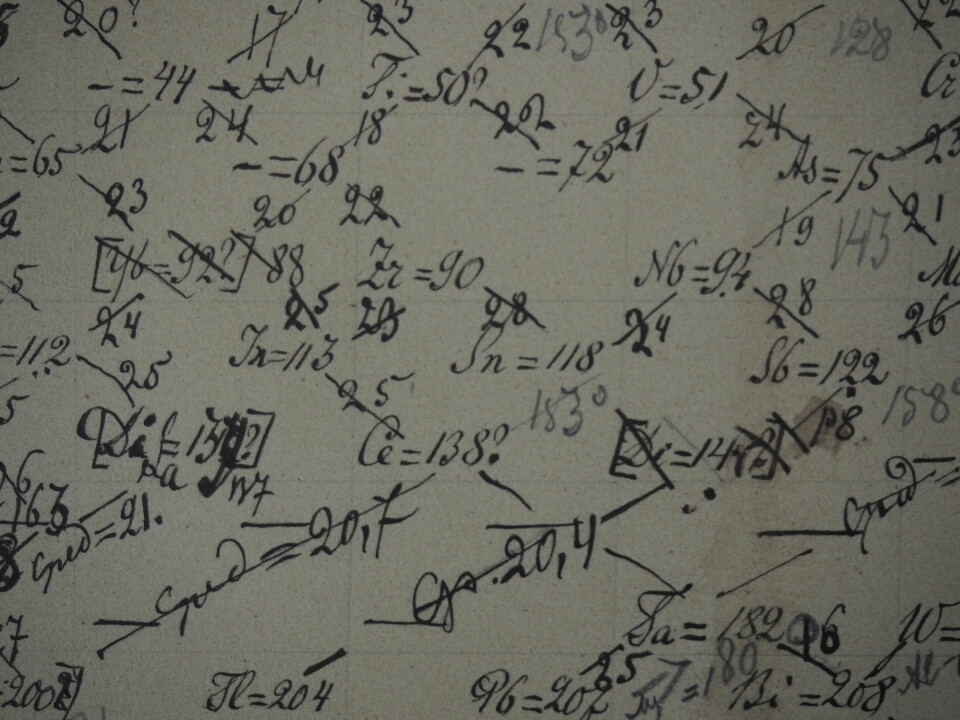 20? 17 23 22 153° 23 20 128
— = 44 Ti = 50? V = 51 Cr
21 24 18 22 21 24 23
= 65 — = 68 — = 72 As = 75
23 20 22 19 143 21
[Yb = 92?] 88 Zr = 90 Nb = 94 Mo
5 24 25 28 24 28 26
= 112 In = 113 Sn = 118 Sb = 122
5 25 25 183° 158°
[Di = 15 ?] Ce = 138? [Di = 14 ?] 18
La
163 сред = 21. сред = 20,7 Ср. 20,4 сред =
Ta = 182 16 W =
= 200? Tl = 204 Pb = 207 25 = 180 Bi = 208